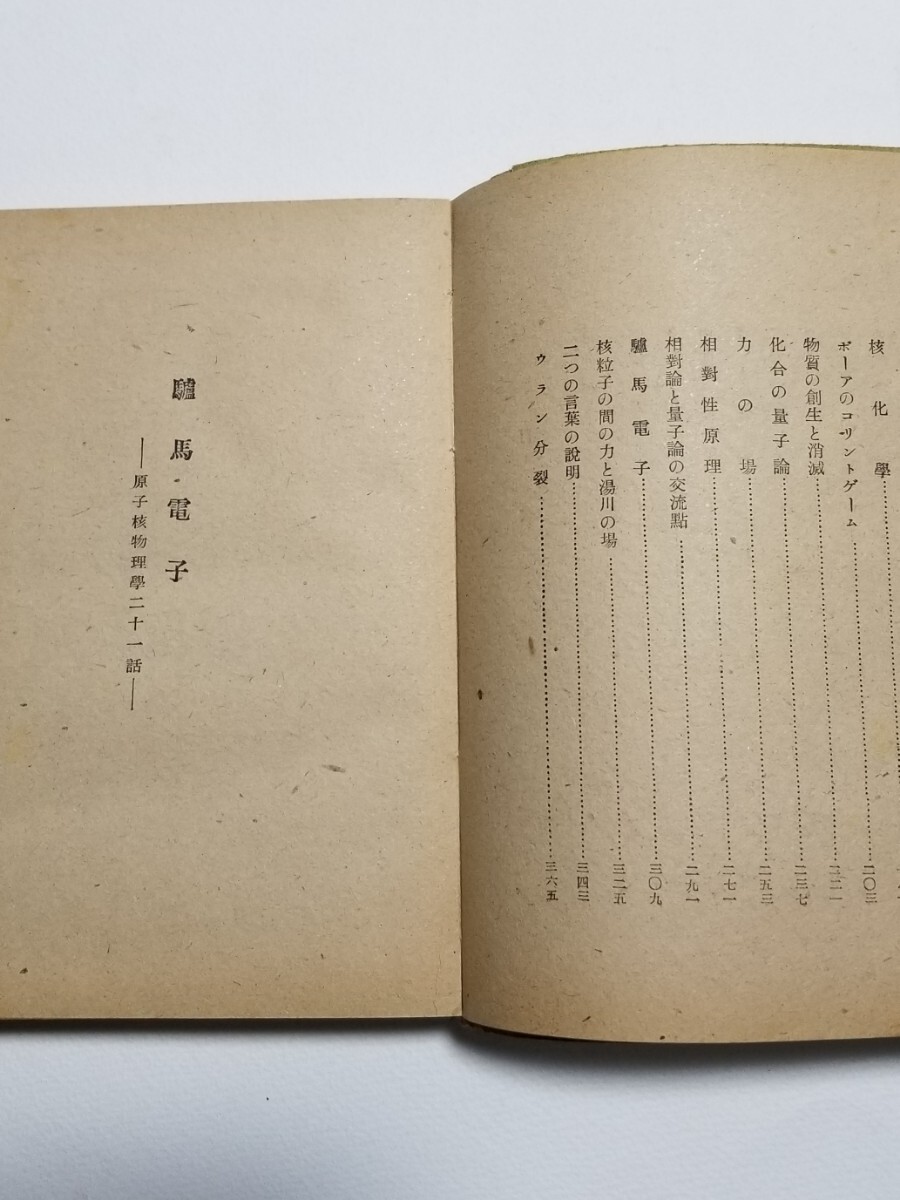 核化學……………二〇三
ボーアのコリントゲーム……………二二一
物質の創生と消滅……………二三七
化合の量子論……………二五三
力の場……………二七一
相對性原理……………二九一
相對論と量子論の交流點……………三〇九
驢馬電子……………三二五
核粒子の間の力と湯川の場……………三四三
二つの言葉の說明……………三六五
ウラン分裂
驢馬電子
――原子核物理學二十一話――